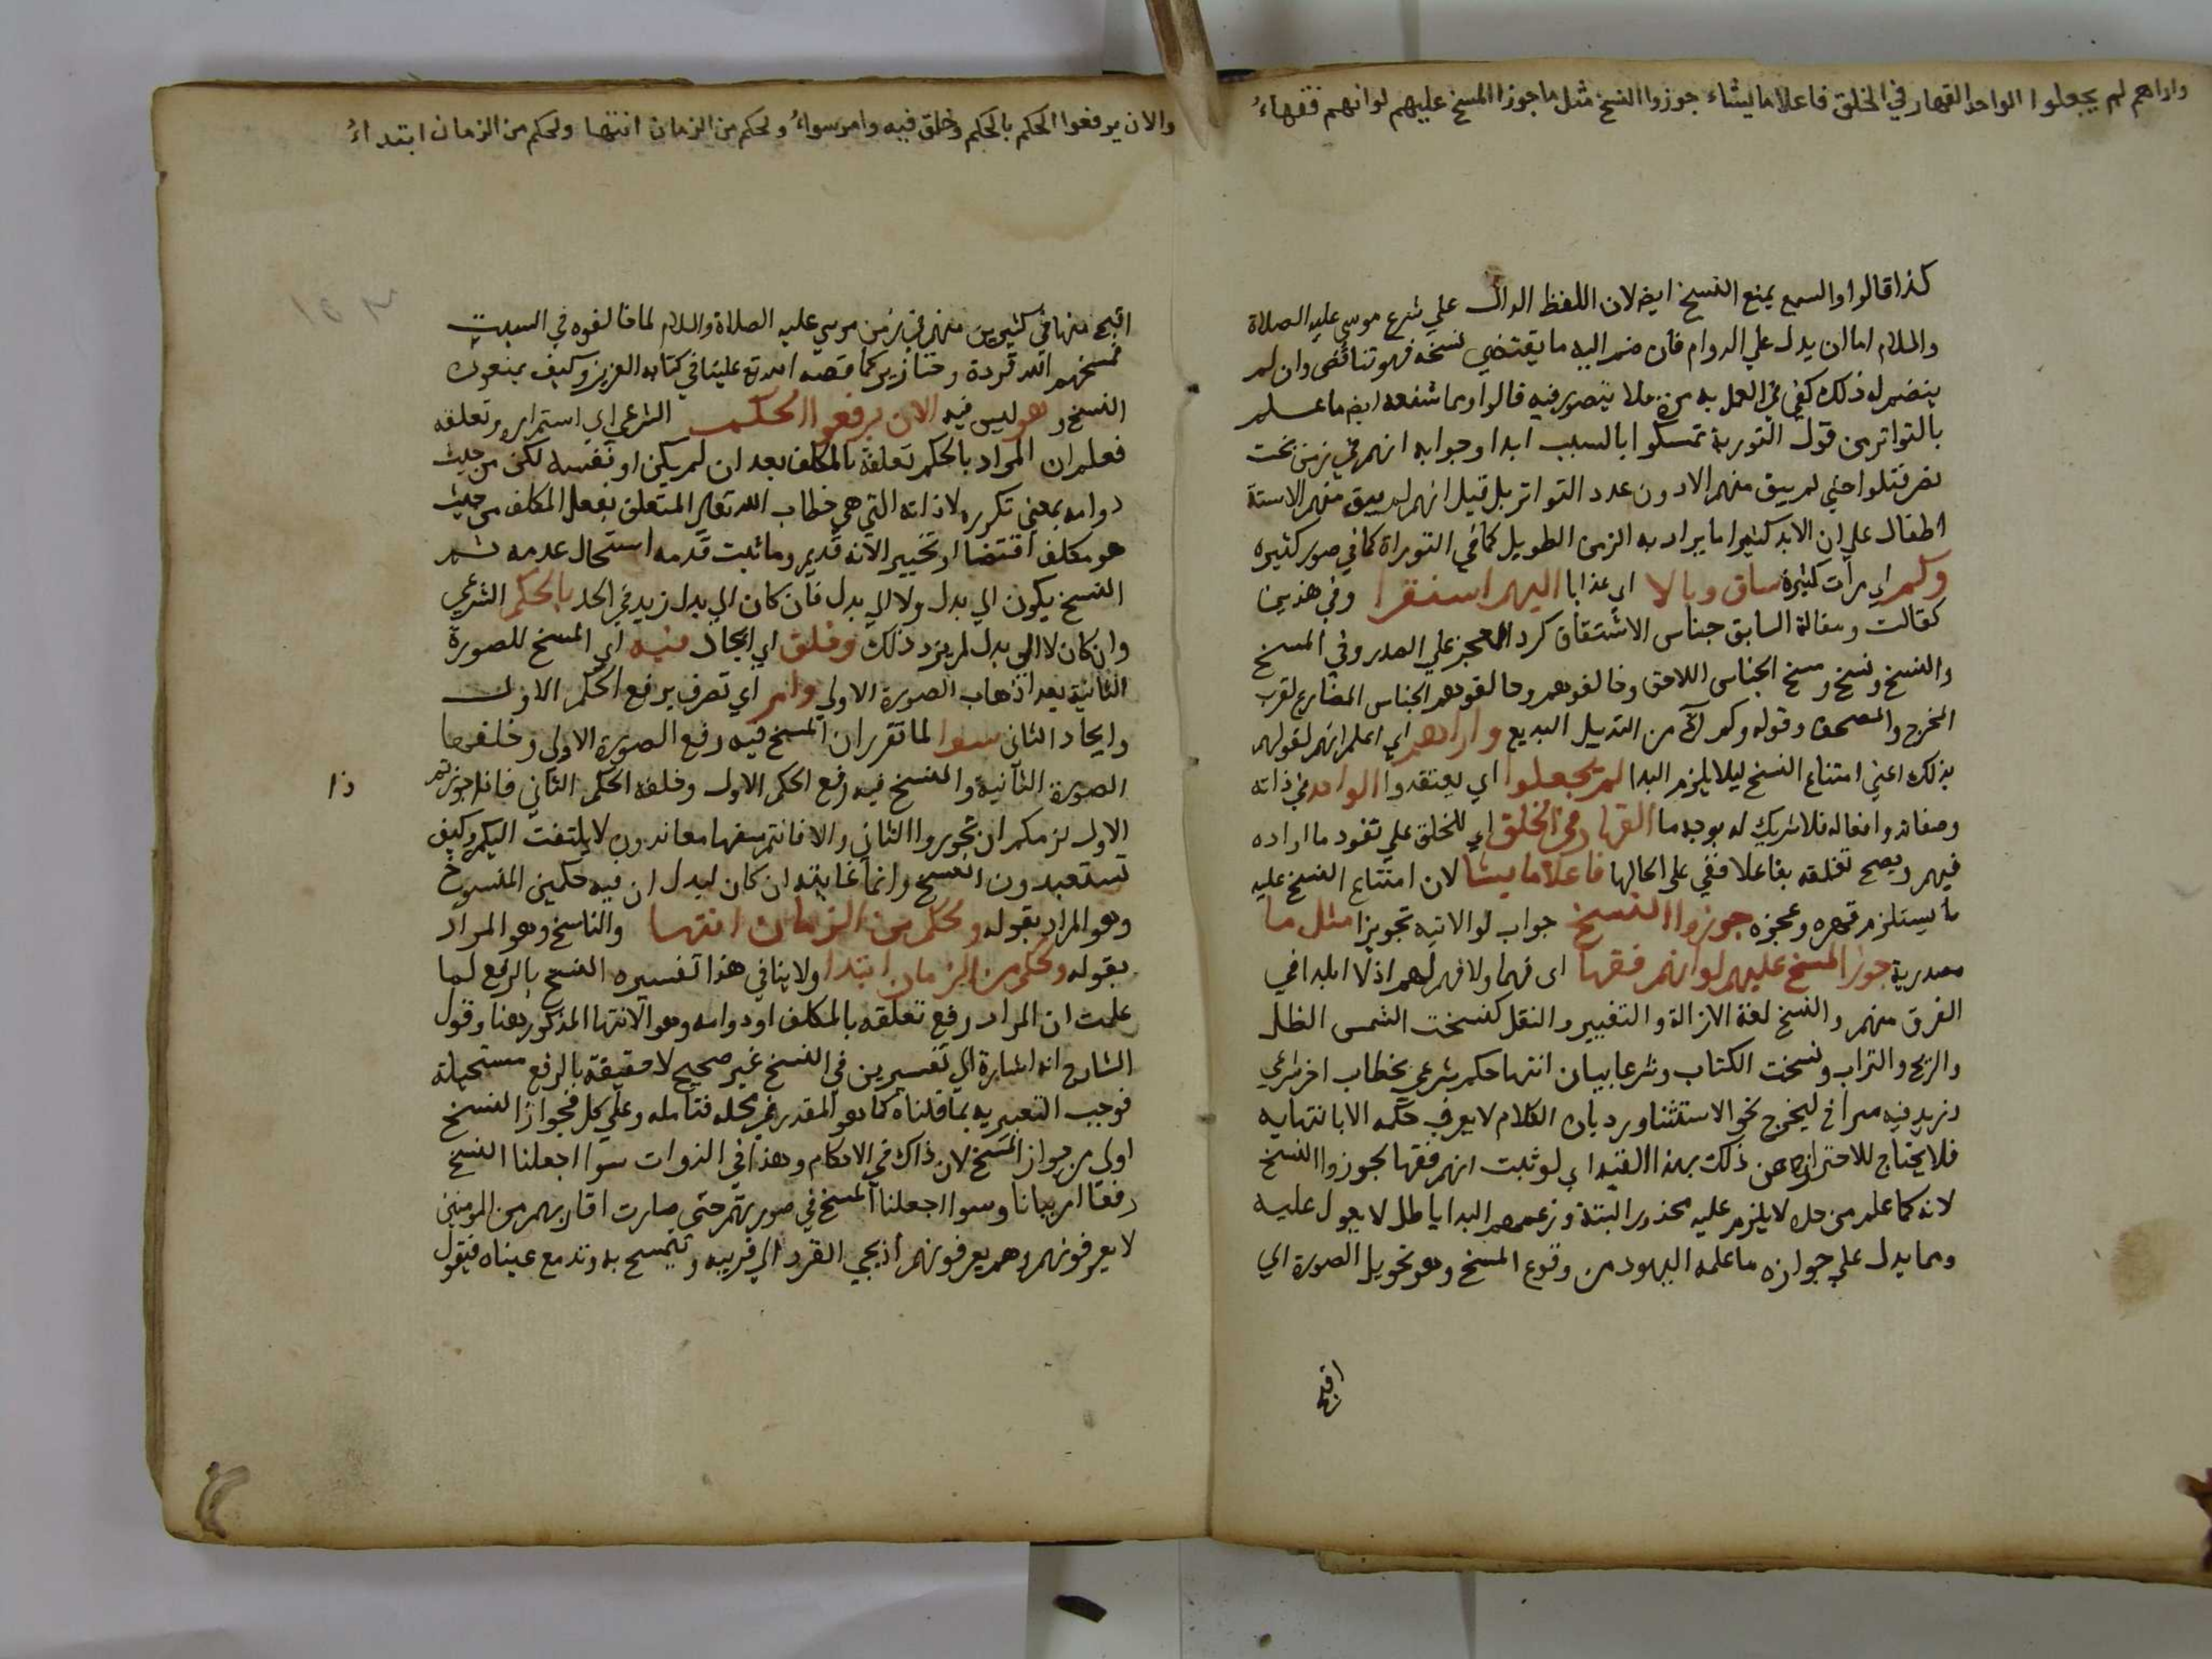 واراهم لم يجعلوا الواحد القهار في الخلق فاعلا ما يشاء جوزوا النسخ مثل ما جوزا المسخ عليهم لو انهم فقهاءُ
كذا قالوا والسمع يمنع النسخ ايض لان اللفظ الدال علي شرع موسي عليه الصلاة
والسلام اما ان يدل علي الدوام فان ضم اليه ما يقتضي نسخه فهو تناقض وان لم
ينضم له ذلك كفي في العمل به مرة فلا يتصور فيه قالوا ومما شفعه ايض ما علم
بالتواتر من قول التورية تمسكوا بالسبت ابدا وجوابه انهم في زمن بخت
نصر قتلوا حتي لم يبق منهم الا دون عدد التواتر بل قيل انهم لم يبق منهم الا ستة
اطفال علي ان الابد كثيرا ما يراد به الزمن الطويل كما في التوراة كما في صور كثيره
وكم اي مرات كثيرة ساق وبالا اي عذابا اليهم استقرا وفي هذين
كقالت ومقالة السابق جناس الاشتقاق كرد العجز علي الصدر وفي المسخ
والنسخ ونسخ ومسخ الجناس اللاحق وخالفوهم وحالفوهم الجناس المضارع لقرب
المخرج والمصحف وقوله وكم الخ من التذييل البديع واراهم اي اعلم انهم لقولهم
بذلك اعني امتناع النسخ ليلا يلزم البدا لم يجعلوا اي يعتقدوا الواحد في ذاته
وصفاته وافعاله فلا شريك له بوجه ما القهار في الخلق اي للخلق علي نفوذ ما اراده
فيهم ويصح تعلقه بفاعلا ففي علي الحالها فاعلا ما يشا لان امتناع النسخ عليه
ما يستلزم قهره وعجزه جوزوا النسخ جواب لو الاتيه تجويزا مثل ما
مصدرية جوز المسخ عليهم لو انهم فقها اي فهما ولا فهم لهم اذ لا ابلد في
الفرق منهم والنسخ لغة الازالة والتغيير والنقل كنسخت الشمس الظل
والريح والتراب ونسخت الكتاب وشرعا بيان انتها حكم شرعي بخطاب اخر شرعي
وزيد فيه متراخ ليخرج نحو الاستثنا ورد بان الكلام لا يعرف حكمه الا بانتهايه
فلا يحتاج للاحتراز عن ذلك بهذا القيد اي لو ثبت انهم فقها لجوزوا النسخ
لانه كما علم من حده لا يلزم عليه محذور البتة وزعمهم البدا باطل لا يعول عليه
ومما يدل علي جوازه ما علمه اليهود من وقوع المسخ وهو تحويل الصورة الي
اقبح
والان يرفعوا الحكم بالحكم وخلق فيه وامر سواءُ ولحكم من الزمان انتها ولحكم من الزمان ابتداءُ
اقبح منها في كثيرين منهم في زمن موسي عليه الصلاة والسلام لما خالفوه في السبت
فمسخهم الله قردة وخنازير كما قصه الله تع علينا في كتابه العزيز وكيف يمنعون
النسخ وهو ليس فيه الا ان يرفعوا الحكم الشرعي اي استمراره وتعلقه
فعلم ان المراد بالحكم تعلقه بالمكلف بعد ان لم يكن او نفسه لكن من حيث
دوامه بمعني تكرره لا ذاته التي هي خطاب الله تعالي المتعلق بفعل المكلف من حيث
هو مكلف اقتضا او تخييرا لانه قديم وما ثبت قدمه استحال عدمه ثم
النسخ يكون الي بدل ولا الي بدل فان كان الي بدل زيد في الحد بالحكم الشرعي
وان كان لا الي بدل لم يزد ذلك وخلق اي ايجاد فيه اي المسخ للصورة
الثانية بعد اذهاب الصورة الاولي وامر اي تصرف يرفع الحكم الاول
وايجاد الثاني سوا لما تقرر ان المسخ فيه رفع الصورة الاولي وخلفها
الصورة الثانية والنسخ فيه رفع الحكم الاول وخلفه الحكم الثاني فاذا جوزتم
ذا
الاول لزمكم ان تجوروا الثاني والا فانتم سفها معاندون لا يلتفت اليكم وكيف
تستعبدون النسخ وانما غايته ان كان لبدل ان فيه حكمين المنسوخ
وهو المراد بقوله ولحكم من الزمان انتها والناسخ وهو المراد
بقوله ولحكم من الزمان ابتدا ولا ينافي هذا تفسيره النسخ بالرفع لما
علمت ان المراد رفع تعلقه بالمكلف او دوامه وهو الانتها المذكور هنا وقول
الشارح انه اشارة الي تفسيرين في النسخ غير صحيح لا حقيقة بالرفع مستحيلة
فوجب التعبير به بما قلناه كما هو المقدر في محله فتامله وعلي كل فجواز النسخ
اولي من جواز المسخ لان ذاك في الاحكام وهذا في الذوات سوا اجعلنا النسخ
رفعا ام بيانا وسوا اجعلنا المسخ في صورتهم حتي صارت اقاربهم من المومنين
لا يعرفونهم وهم يعرفونهم اذ يجي القرد الي قريبه ويتمسح به وتدمع عيناه فيقول